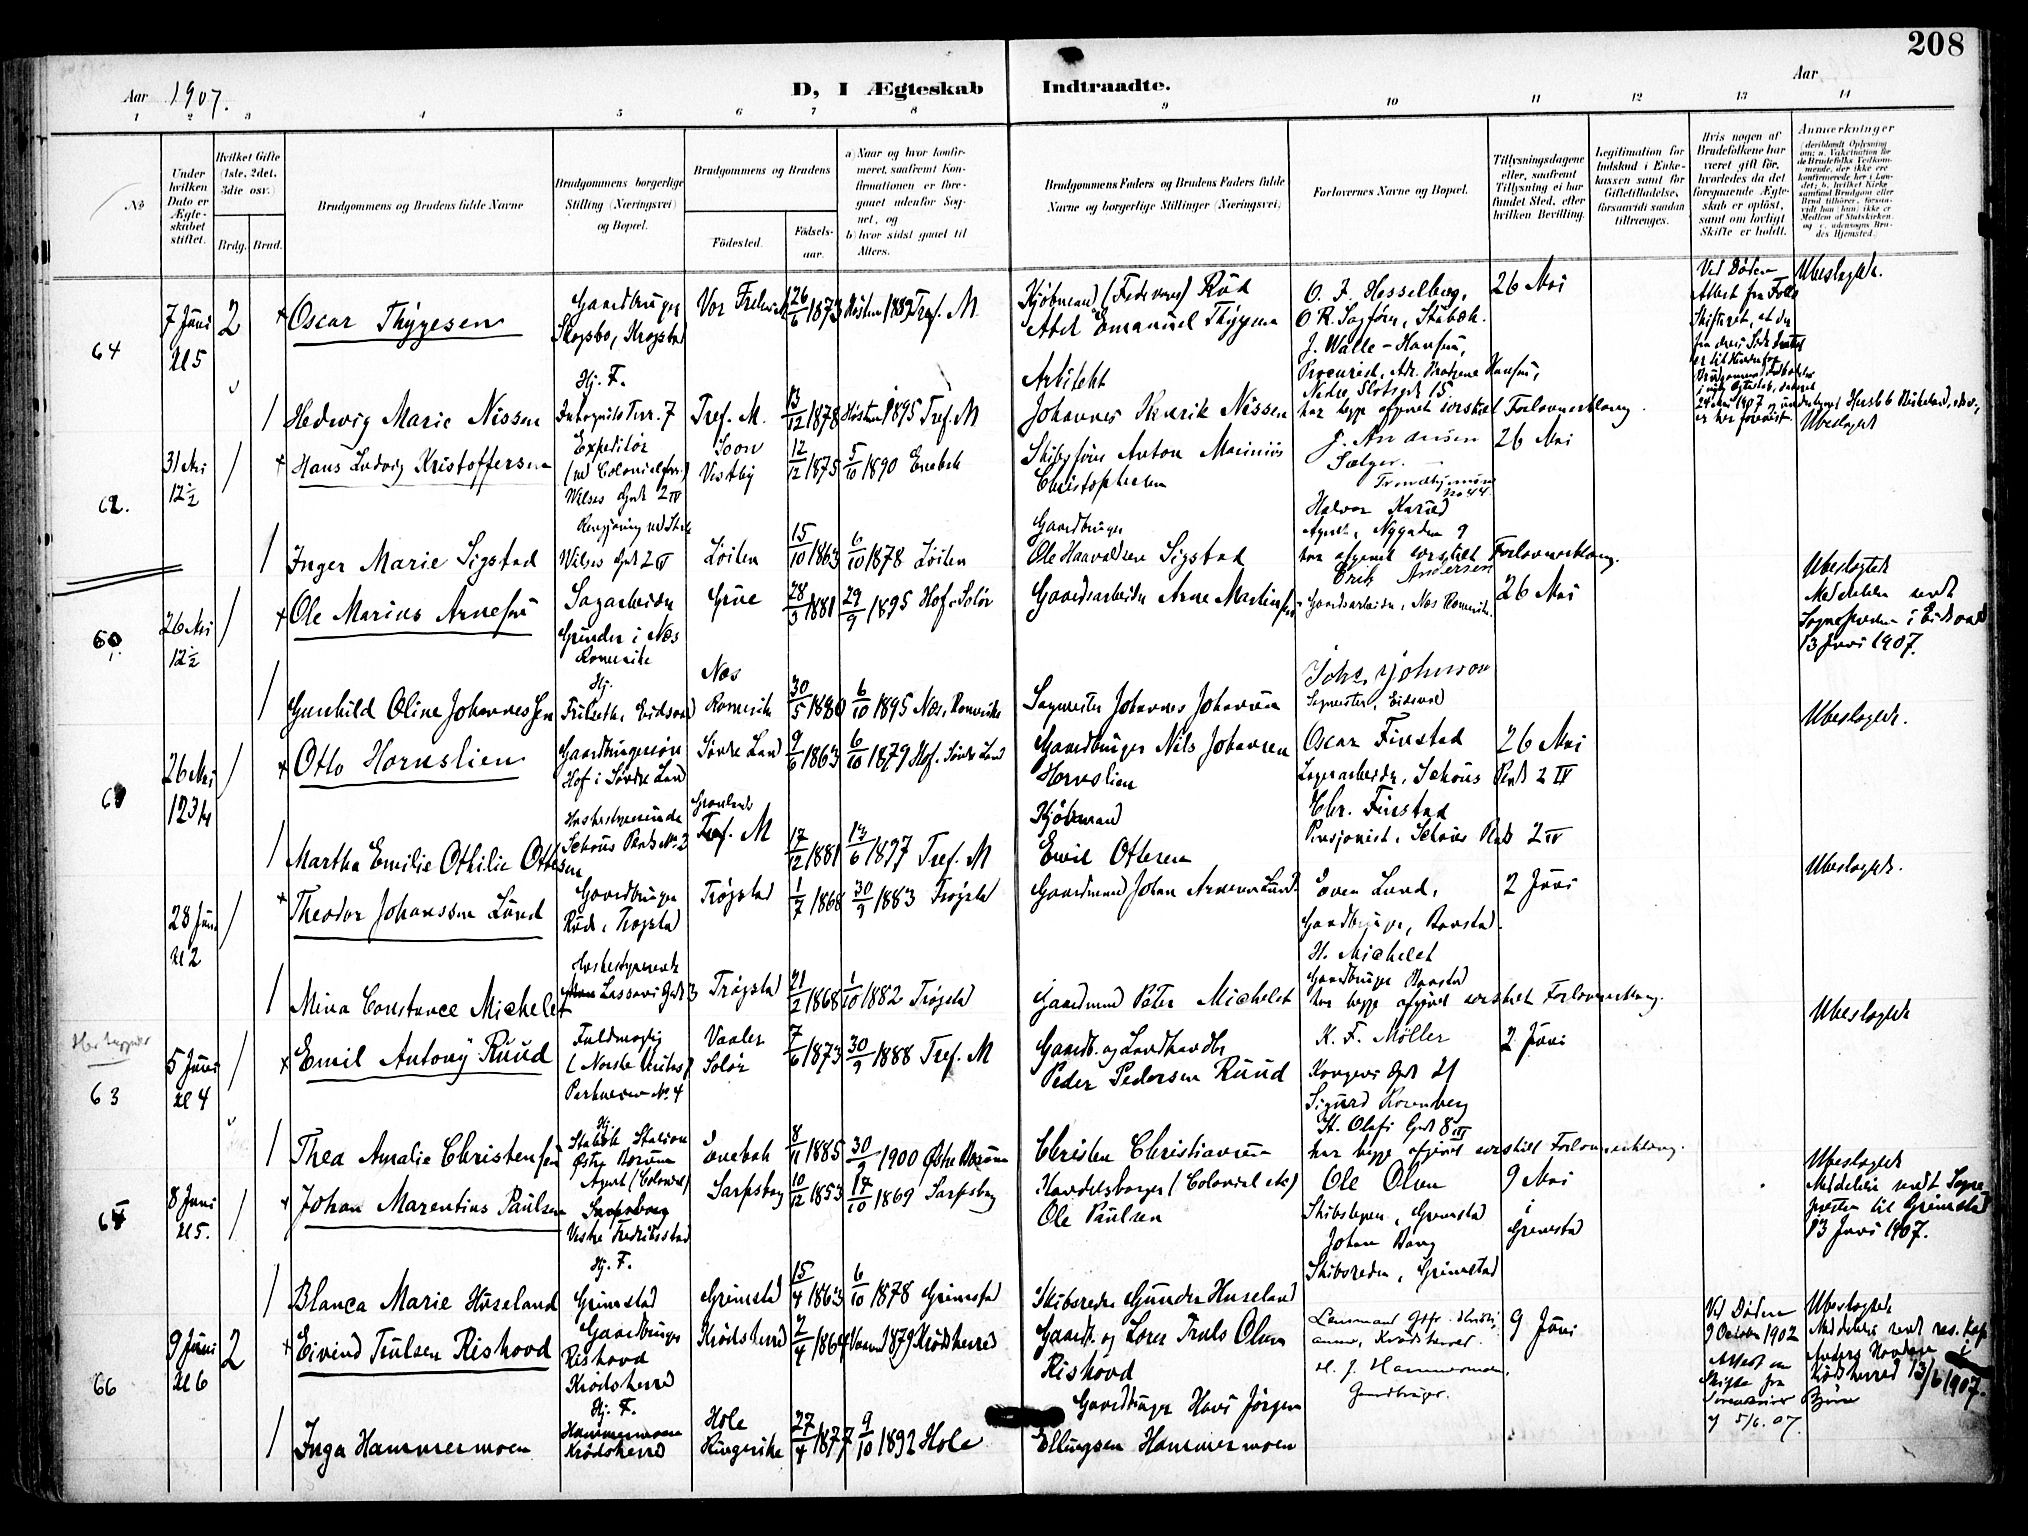 208
Aar 1907.
D, I Ægteskab Indtraadte.
Aar
1 2 3 4 5 6 7 8 9 10 11 12 13 14
№
Under hvilken Dato er Ægteskabet stiftet.
Hvilket Gifte (1ste, 2det, 3die osv.)
Brdg. Brud.
Brudgommens og Brudens fulde Navne
Brudgommens borgerlige Stilling (Næringsvei) og Bopæl.
Brudgommens og Brudens
Fødested. Fødselsaar.
a) Naar og hvor konfirmeret, saafremt Konfirmationen er foregaaet udenfor Sognet, og
b) hvor sidst gaaet til Alters.
Brudgommens Faders og Brudens Faders fulde Navne og borgerlige Stillinger (Næringsvei)
Forlovernes Navne og Bopæl.
Tillysningsdagene eller, saafremt Tillysning ei har fundet Sted, efter hvilken Bevilling.
Legitimation for Indskud i Enkekassen samt for Giftetilladelse, forsaavidt saadan tiltrænges.
Hvis nogen af Brudefolkene har været gift før, hvorledes da det foregaaende Ægteskab er opløst, samt om lovligt Skifte er holdt.
Anmerkninger
64
7 Juni kl 5
2
Oscar Thygesen
Gaardbruger
Hj. F.
26/6 1873
Høsten 1889 Tref. M.
Kjøbmand
Abel Emanuel Thygesen
O. F. Hesselberg,
26 Mai
Ved Døden
Ubeslægtede.
1
Hedwig Marie Nissen
Tref. M.
13/12 1878
Høsten 1895 Tref. M
Arkitekt
Johannes Henrik Nissen
har begge afgivet særskilt Forlovererklæring.
62.
31 Mai 12½
1
Hans Ludvig Kristoffersen
Expeditør
Wilses Gade 2 IV
Soon Vestby
12/12 1875
5/10 1890 Enebak
Skibsfører Anton Marinius
Christophersen
J. Andersen
Sælger.
26 Mai
Ubeslægtede
1
Inger Marie Sigstad
Wilses Gade 2 IV
Løiten
15/10 1863
6/10 1878 Løiten
Gaardbruger
Ole Haavaldsen Sigstad
Agent, Nygaden 9
har afgivet særskilt Forlovererklæring.
60
26 Mai 12½
1
Ole Marius Arnesen
Sagarbeider
Grinder i Næs
Romerike
Grue
28/3 1881
29/9 1895 Hof-Solør
Gaardsarbeider Arne Martinsen
Erik Andersen
Gaardsarbeider, Næs Romerike.
26 Mai
Ubeslægtede
Meddelelse sendt
Sognepresten i Eidsvold
13 Juni 1907.
1
Gunhild Oline Johannessen
Hj.
Næs Romerike
30/5 1880
6/10 1895 Næs, Romerike
Sagmester Johannes Johansen
Johs. Johnson
Sagmester, Eidsvold
61
26 Mai
1
Otto Hornslien
Gaardbrugersøn
Hof i Søndre Land
Søndre Land
9/6 1863
6/10 1879 Hof. Søndre Land
Gaardbruger Nils Johansen
Hornslien
Oscar Finstad
Lagerarbeider, Schous Plads 2 IV
26 Mai
Ubeslægtede.
1
Martha Emilie Othilie Ottesen
Schous Plads No 2
Grønlands Tref. M
17/12 1881
13/6 1897 Tref. M
Kjøbmand
Emil Ottesen
Chr. Finstad
Pensjonist, Schous Plads 2 IV
28 Juni kl 2
1
Theodor Johanssen Lund
Gaardbruger
Rud, Trøgstad
Trøgstad
1/7 1868
30/9 1883 Trøgstad
Gaardmand Johan Arnesen Lund
Even Lund,
Gaardbruger, Baastad.
2 Juni
Ubeslægtede.
1
Mina Constance Michelet
Lassons Gade 3
Trøgstad
21/2 1868
1/10 1882 Trøgstad
Gaardmand Peter Michelet
H. Michelet
Gaardbruger Baastad
har begge afgivet særskilt Forlovererklæring.
63
5 Juni kl 4
1
Emil Antony Ruud
Fuldmægtig
Parkveien No. 4
Vaaler Solør
7/6 1873
30/9 1888 Tref. M
Gaardb. og Landhandler
Peder Pedersen Ruud
K. F. Møller
Kongens Gade 21
2 Juni
Ubeslægtede
1
Thea Amalie Christensen
Hj.
Stabæk Station
Østre Bærum
Enebak
8/11 1885
30/9 1900 Østre Bærum
Christen Christiansen
Sigurd Rosenberg
St. Olafs Gade 8 III
har begge afgivet særskilt Forlovererklæring.
65
8 Juni kl 5.
1
Johan Marentius Paulsen
Agent (Colonial)
Sarpsborg
Vestre Fredrikstad
Sarpsborg
10/12 1853
17/10 1869 Sarpsborg
Handelsborger (Colonial etc)
Ole Paulsen
Ole Olsen
Grimstad
9 Mai i Grimstad
Ubeslægtede
Meddelelse sendt Sogne
presten til Grimstad
13 Juni 1907.
1
Blanca Marie Huseland
Hj. F.
Grimstad
Grimstad
15/4 1863
6/10 1878 Grimstad
Skibsreder Gunder Huseland
Johan Bang
Skibsreder, Grimstad
66
9 Juni kl 6
2
Eivind Trulsen Riskovd
Gaardbruger
Riskovd
Krødsherred
Krødsherred
2/4 1864
Vaaren 1879 Krødsherred
Gaardb. og Lærer Truls Olsen
Riskovd
9 Juni
Ved Døden
9 October 1902
af 5/6. 07.
Ubeslægtede
Meddelelse sendt res. Kap.
Krødsherred 13/6 1907.
1
Inga Hammermoen
Hj. F.
Hammermoen
Krødsherred
Hole Ringerike
27/4 1877
9/10 1892 Hole
Gaardbruger Hans Jørgen
Ellingsen Hammermoen
H. J. Hammermoen,
Gaardbruger.